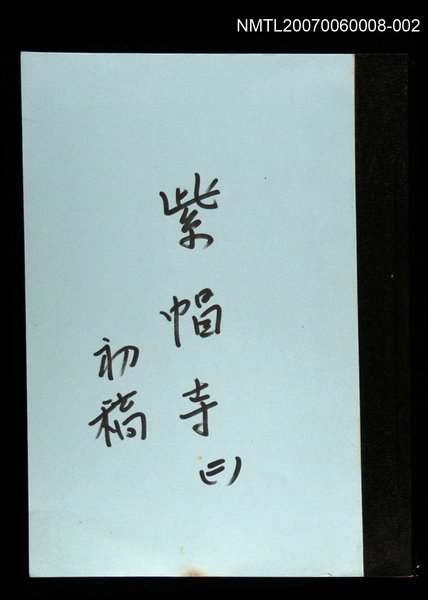 NMTL20070060008-002
紫帽寺(二)
初稿